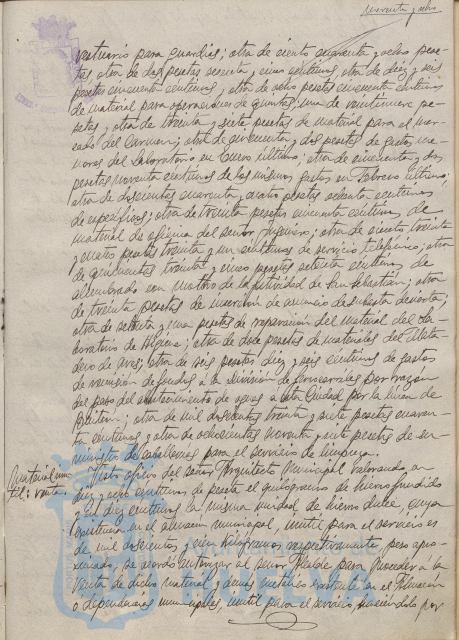 cuarenta y ocho
vestuario para guardias; otra de ciento cuarenta y ocho pese-
tas, otra de dos pesetas sesenta y cinco céntimos, otra de diez y seis
pesetas cincuenta céntimos, y otra de ocho pesetas cincuenta céntimos
de material para operaciones de quintas; una de veintinueve pe-
setas y otra de treinta y siete pesetas de material para el mer-
cado del Carmen; otra de cincuenta y dos pesetas de gastos me-
nores del Laboratorio en Enero último; otra de cincuenta y dos
pesetas noventa céntimos de los mismos gastos en Febrero último;
otra de doscientas cuarenta y cuatro pesetas ochenta céntimos
de específicos; otra de treinta pesetas cincuenta céntimos de
material de oficina del señor Ingeniero; otra de ciento treinta
y cuatro pesetas treinta y un céntimos de servicio telefónico; otra
de quinientas treinta y cinco pesetas setenta céntimos de
alumbrado con motivo de la festividad de San Sebastián; otra
de treinta pesetas de inserción de anuncio de subasta desierta;
otra de setenta y una pesetas de reparación del material del La-
boratorio de Aguas; otra de doce pesetas de materiales del Mata-
dero de aves; otra de seis pesetas diez y seis céntimos de gastos
de remisión de fondos a la División de ferrocarriles por razón
del paso del abastecimiento de aguas a esta Ciudad por la línea de
otra de mil doscientas treinta y siete pesetas cuaren-
ta céntimos y otra de ochocientas noventa y siete pesetas de su-
ministro de caballerías para el servicio de limpieza.
Material inu-
til: venta.
Visto oficio del señor Arquitecto Municipal valorando, en
diez y ocho céntimos de peseta el quilogramo de hierro fundido
y en diez céntimos la misma unidad de hierro dulce, cuya
existencia en el almacén municipal, inútil para el servicio es
de mil doscientos y cien kilogramos respectivamente, pero apro-
ximado, se acordó autorizar al señor Alcalde para proceder a la
venta de dicho material y demás metálico existente en el Almacén
o dependencias municipales, inútil para el servicio, haciéndolo por